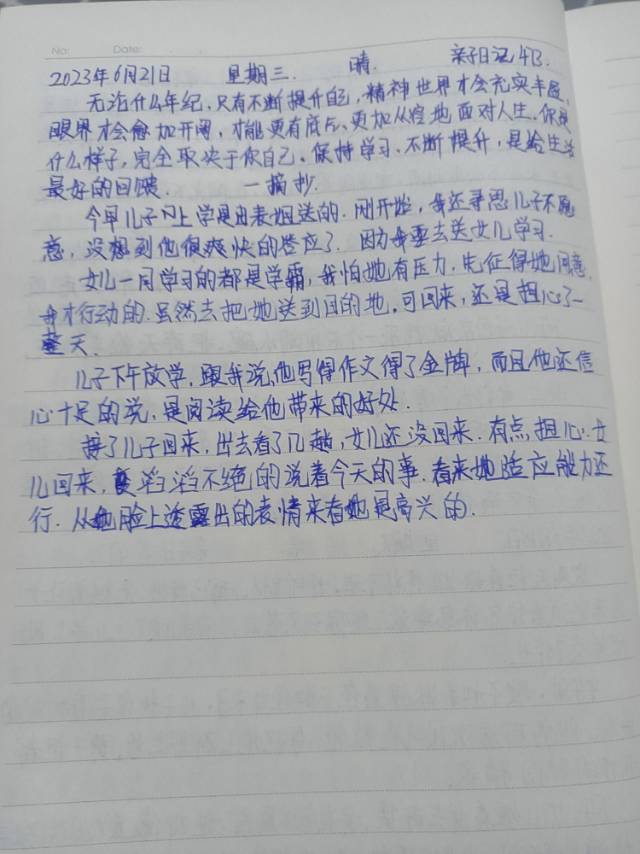 No: Date:
2023年6月21日 星期三. 晴. 亲子日记
无论什么年纪,只有不断提升自己,精神世界才会充实丰盈,
眼界才会愈加开阔,才能更有底气、更加从容地面对人生.你是
什么样子,完全取决于你自己.保持学习、不断提升,是给生活
最好的回馈. 一摘抄.
今早儿子上学是由表姐送的.刚开始,我还寻思儿子不愿
意,没想到他很爽快的答应了.因为我要去送女儿学习.
女儿一同学习的都是学霸,我怕她有压力.先征得她同意,
我才行动的.虽然去把她送到目的地,可回来,还是担心了一
整天.
儿子下午放学,跟我说,他写得作文得了金牌,而且他还信
心十足的说,是阅读给他带来的好处.
接了儿子回来,出去看了几趟,女儿还没回来.有点担心.女
儿回来,滔滔不绝的说着今天的事.看来她适应能力还
行.从她脸上透露出的表情来看她是高兴的.